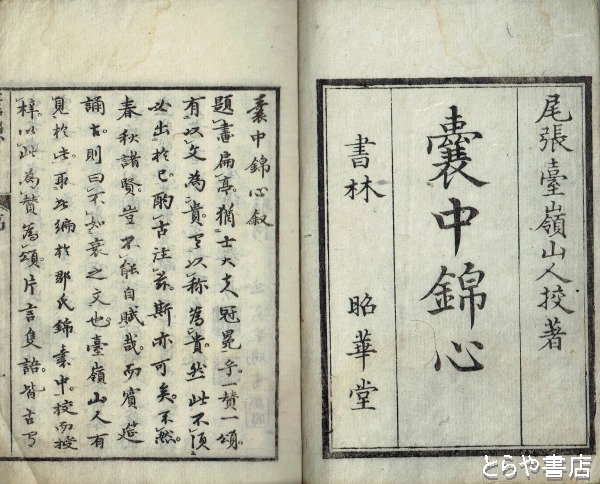 尾張臺嶺山人挍著
嚢中錦心
書林 昭華堂
嚢中錦心叙
題畵扁亭猶士大夫冠冕乎一賛一頌
有以文為貴以称為貴然此不須
必出於己酌古注茲斯亦可矣不然
春秋諸賢豈不能自賦哉而賓筵
誦古則曰不如衰之文也臺嶺山人有
見於此取此編於郡氏錦嚢中挍而授
梓以此為賛為頌片言隻語皆古
とらや書店